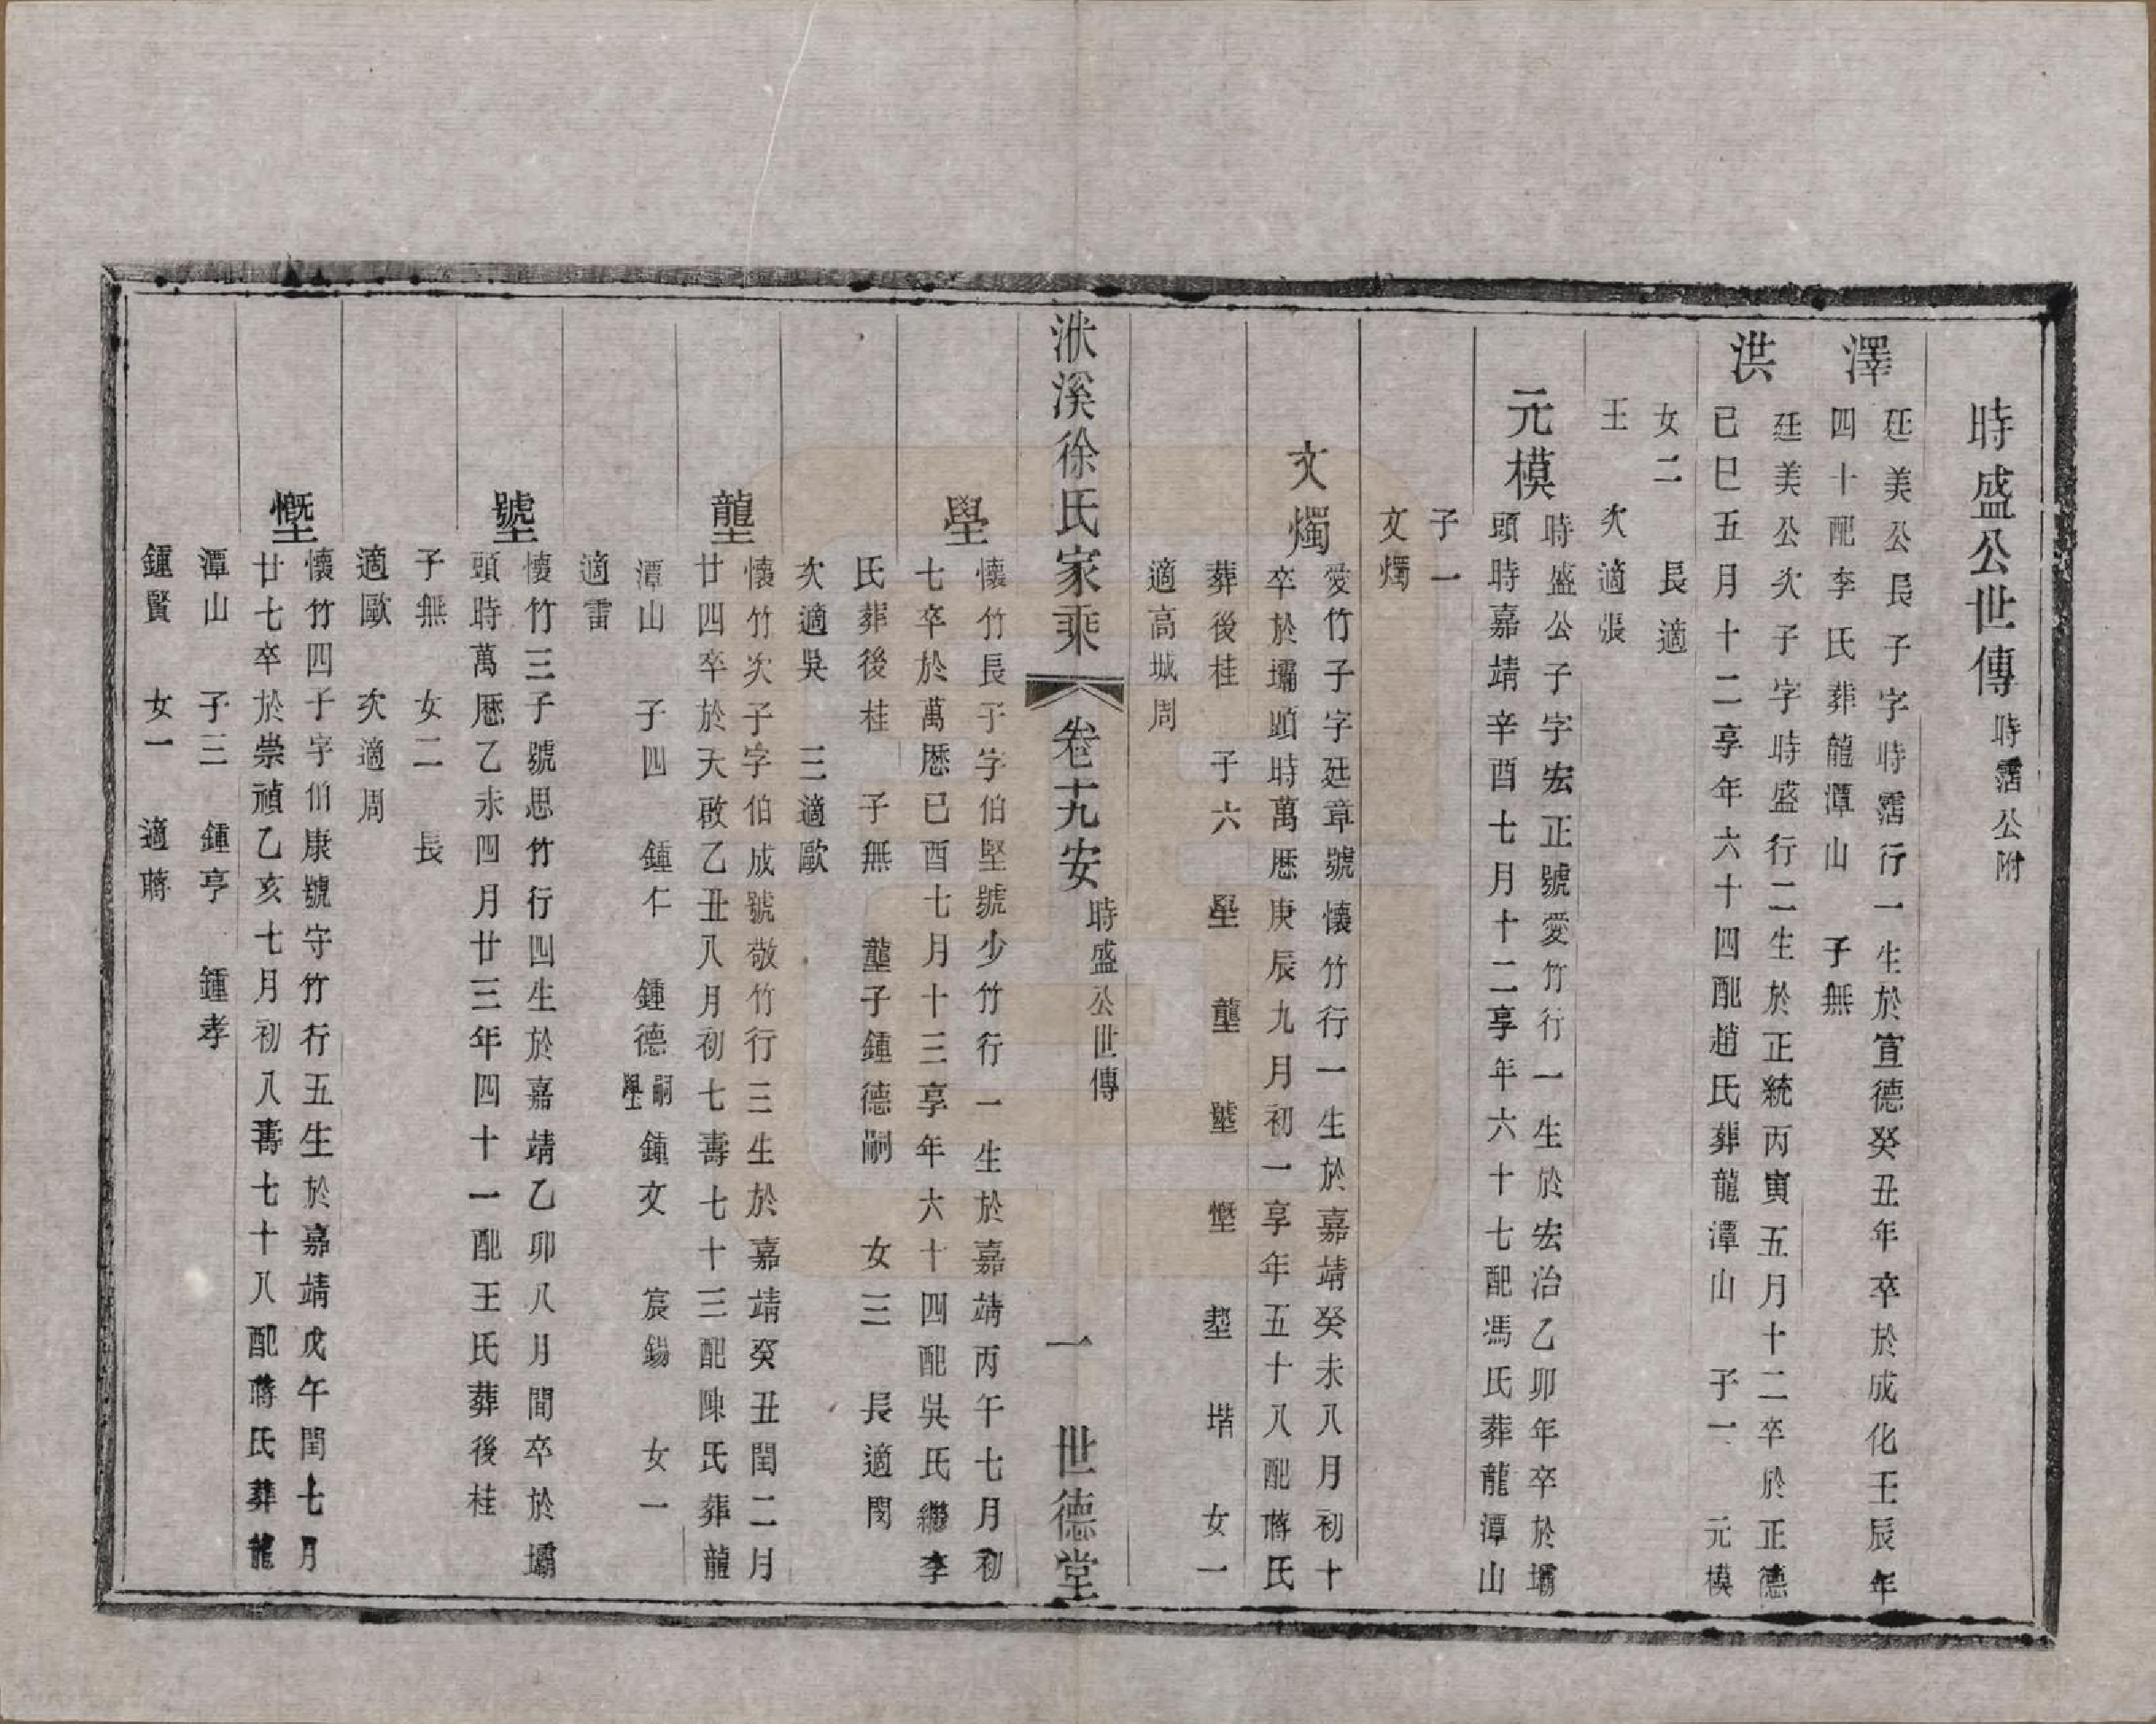 時盛公世傳 時霑公附
澤
廷美公長子字時霑行一生於宣德癸丑年卒於成化壬辰年
四十配李氏葬龍潭山 子無
洪
廷美公次子字時盛行二生於正統丙寅五月十二卒於正德
己巳五月十二享年六十四配趙氏葬龍潭山 子一 元模
女二 長適
王 次適張
元模
時盛公子字宏正號愛竹行一生於宏治乙卯年卒於壩
頭時嘉靖辛酉七月十二享年六十七配馮氏葬龍潭山
子一
文燭
文燭
愛竹子字廷章號懷竹行一生於嘉靖癸未八月初十
卒於壩頭時萬厯庚辰九月初一享年五十八配蔣氏
葬後桂 子六 壆 壟 塦 慳 堥 堦 女一
適高城周
洑溪徐氏家乘 卷十九安 時盛公世傳 一 世德堂
壆
懷竹長子字伯堅號少竹行一生於嘉靖丙午七月初
七卒於萬厯己酉七月十三享年六十四配吳氏繼李
氏葬後桂 子無 壟子鍾德嗣 女三 長適閔
次適吳 三適歐
壟
懷竹次子字伯成號敬竹行三生於嘉靖癸丑閏二月
廿四卒於天啟乙丑八月初七壽七十三配陳氏葬龍
潭山 子四 鍾仁 鍾德嗣壆 鍾文 宸錫 女一
適雷
懷竹三子號思竹行四生於嘉靖乙卯八月間卒於壩
頭時萬厯乙未四月廿三年四十一配王氏葬後桂
子無 女二 長
適歐 次適周
懷竹四子字伯康號守竹行五生於嘉靖戊午閏七月
廿七卒於崇禎乙亥七月初八壽七十八配蔣氏葬龍
潭山 子三 鍾亨 鍾孝
鍾賢 女一 適蔣